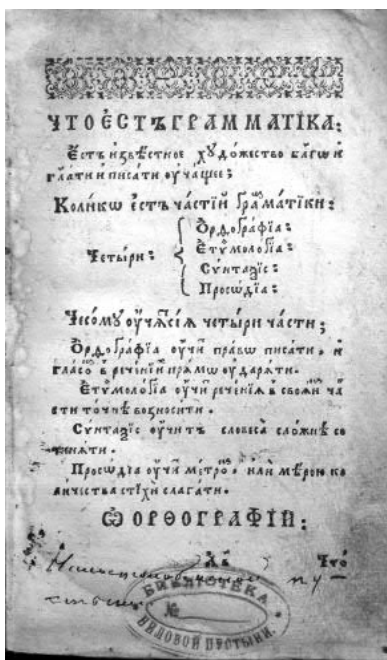 ЧТО Е҆́СТЪ ГРАММАТІ́КА:
Е҆́стъ и҆звѣ́стное худо́жество бл҃гѡ и҆
гл҃ати и҆ писа́ти ѹ҆ча́щее;
Коли́кѡ е҆́стъ ча́стїй Грамма́тїки:
Четы́ри:
Ѻ҆рѳогра́фїа:
Е҆тѷмоло́гїа:
Сѵ́нтаѯїс:
Просѡ́дїа:
Чесомꙋ ѹ҆́чатсѧ сїѧ̀ четы́ри ча́сти;
Ѻ҆рѳогра́фїа ѹ҆чи́т пра́вѡ писа́ти, и҆
гла́сом в речéнїи прѧ́мѡ ѹ҆дарѧ́ти.
Е҆тѷмоло́гїа ѹ҆чи́т рече́нїѧ в своѧ̀ ча́
сти то́чнѣ возноси́ти.
Сѵ́нтаѯїс ѹ҆чи́тъ словеса̀ сло́жнѣ со
чинѧ́ти.
Просѡ́дїа ѹ҆чи́т ме́тром, и҆лѝ мѣ́рою ко
ли́чества стїхѝ слага́ти.
Ѽ ОРѲОГРАФІ́И:
Что̀
БИБЛІОТЕКА
№
НИЛОВОЙ ПУСТЫНИ.